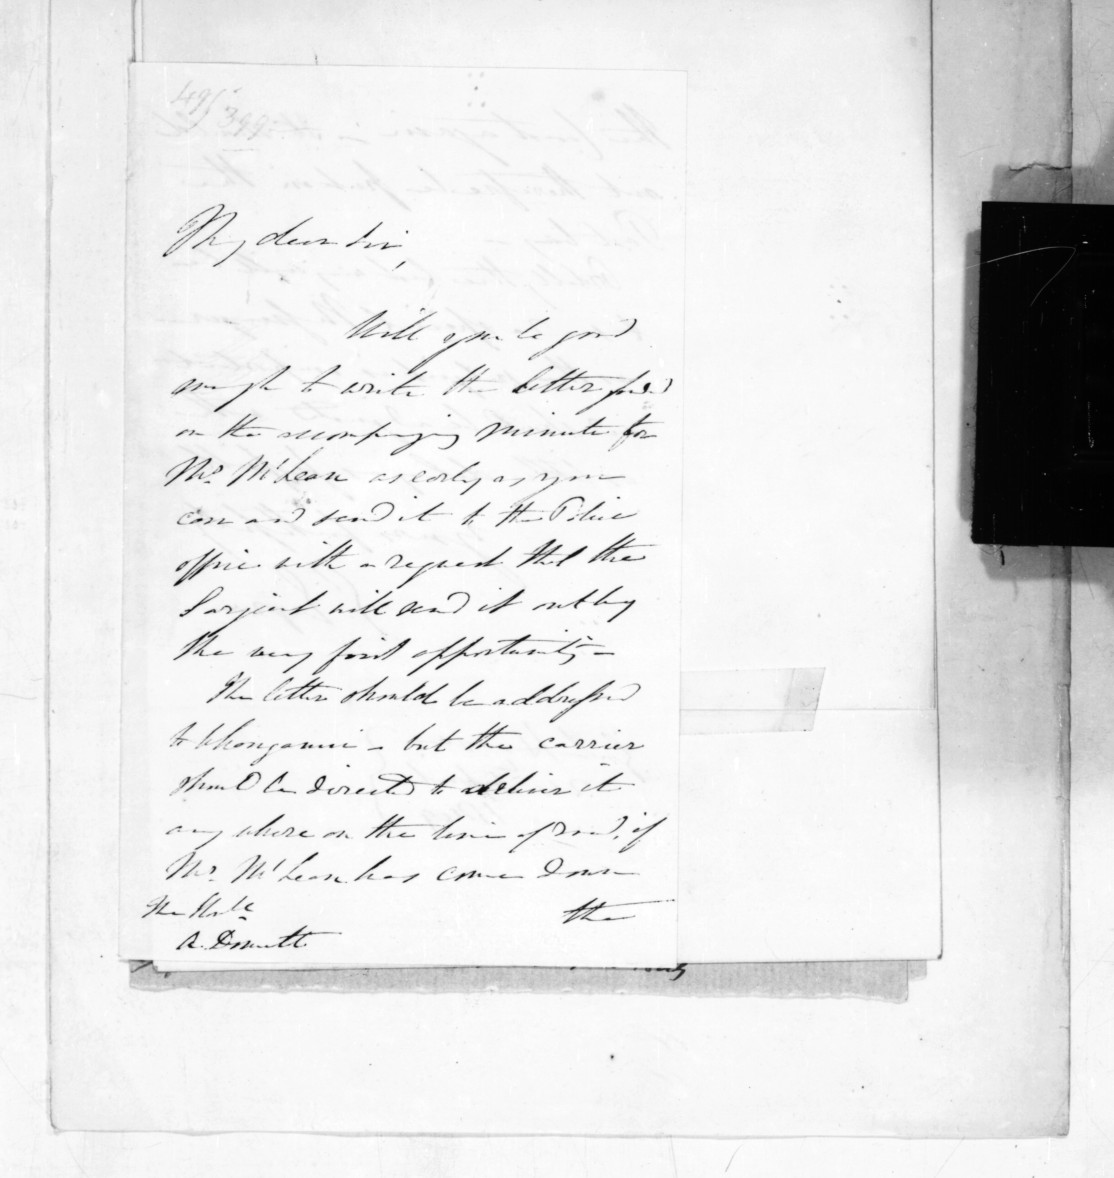 My dear Sir,
Will you be good
enough to write the letter
on the accompanying minute for
Mr. McLean as early as you
can and send it to the Police
office with a request that the
Sargient will send it out by
the very first opportunity -
The letter should be addressed
to Whonganui - but the carrier
should be directed to deliver it
any where on the line of road, if
Mr. McLean has come down
the
The Honble
A. Domett